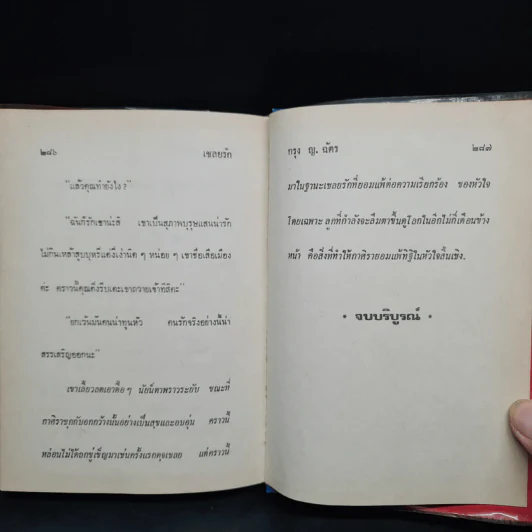 ๒๘๖ เชลยรัก
"แล้วคุณทำยังไง ?"
"ฉันก็รักเขาน่ะสิ เขาเป็นสุภาพบุรุษแสนน่ารัก
ไม่กินเหล้าสูบบุหรี่แค่งี่เง่านิด ๆ หน่อย ๆ เขาชื่อเสือเมือง
ค่ะ คราวนี้คุณดึงรีบเตะเขาถวายเจ้าที่สิคะ"
"ยกเว้นมันคนน่าทุนหัว คนรักจริงอย่างนี้น่า
สรรเสริญออกนะ"
เขาเลี้ยวลดเอาดื้อ ๆ นัยน์ตาพราวระยับ ขณะที่
ภาศิราซุกกับอกกว้างนั้นอย่างเป็นสุขและอบอุ่น คราวนี้
หล่อนไม่ได้ถูกขู่เข็ญมาเช่นครั้งแรกดุจเชลย แต่คราวนี้
กรุง ญ. ฉัตร ๒๘๗
มาในฐานะเชลยรักที่ยอมแพ้ต่อความเรียกร้อง ของหัวใจ
โดยเฉพาะ ลูกที่กำลังจะลืมตาขึ้นดูโลกในอีกไม่กี่เดือนข้าง
หน้า คือสิ่งที่ทำให้ภาศิรายอมแพ้ทิฐิในหัวใจสิ้นเชิง.
• จบบริบูรณ์ •